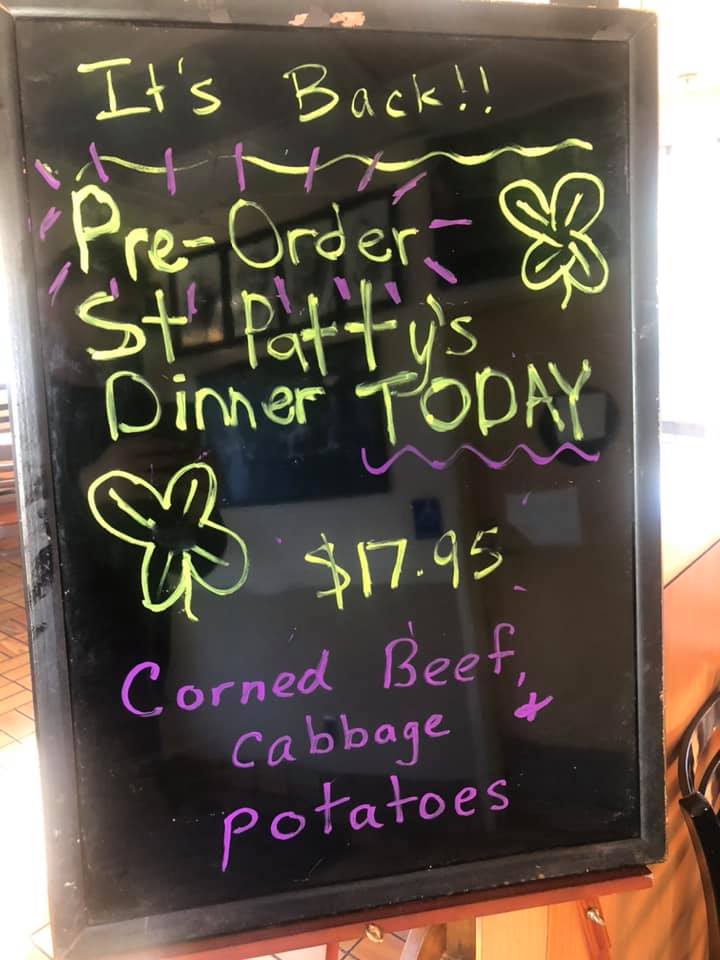 It's Back!!
Pre-Order
St Patty's
Dinner TODAY
$17.95
Corned Beef, &
Cabbage
potatoes